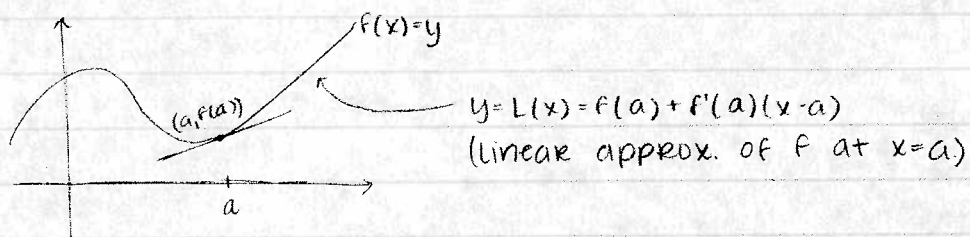 f(x)=y
(a,f(a))
y=L(x)=f(a)+f'(a)(x-a)
(linear approx. of f at x=a)
a